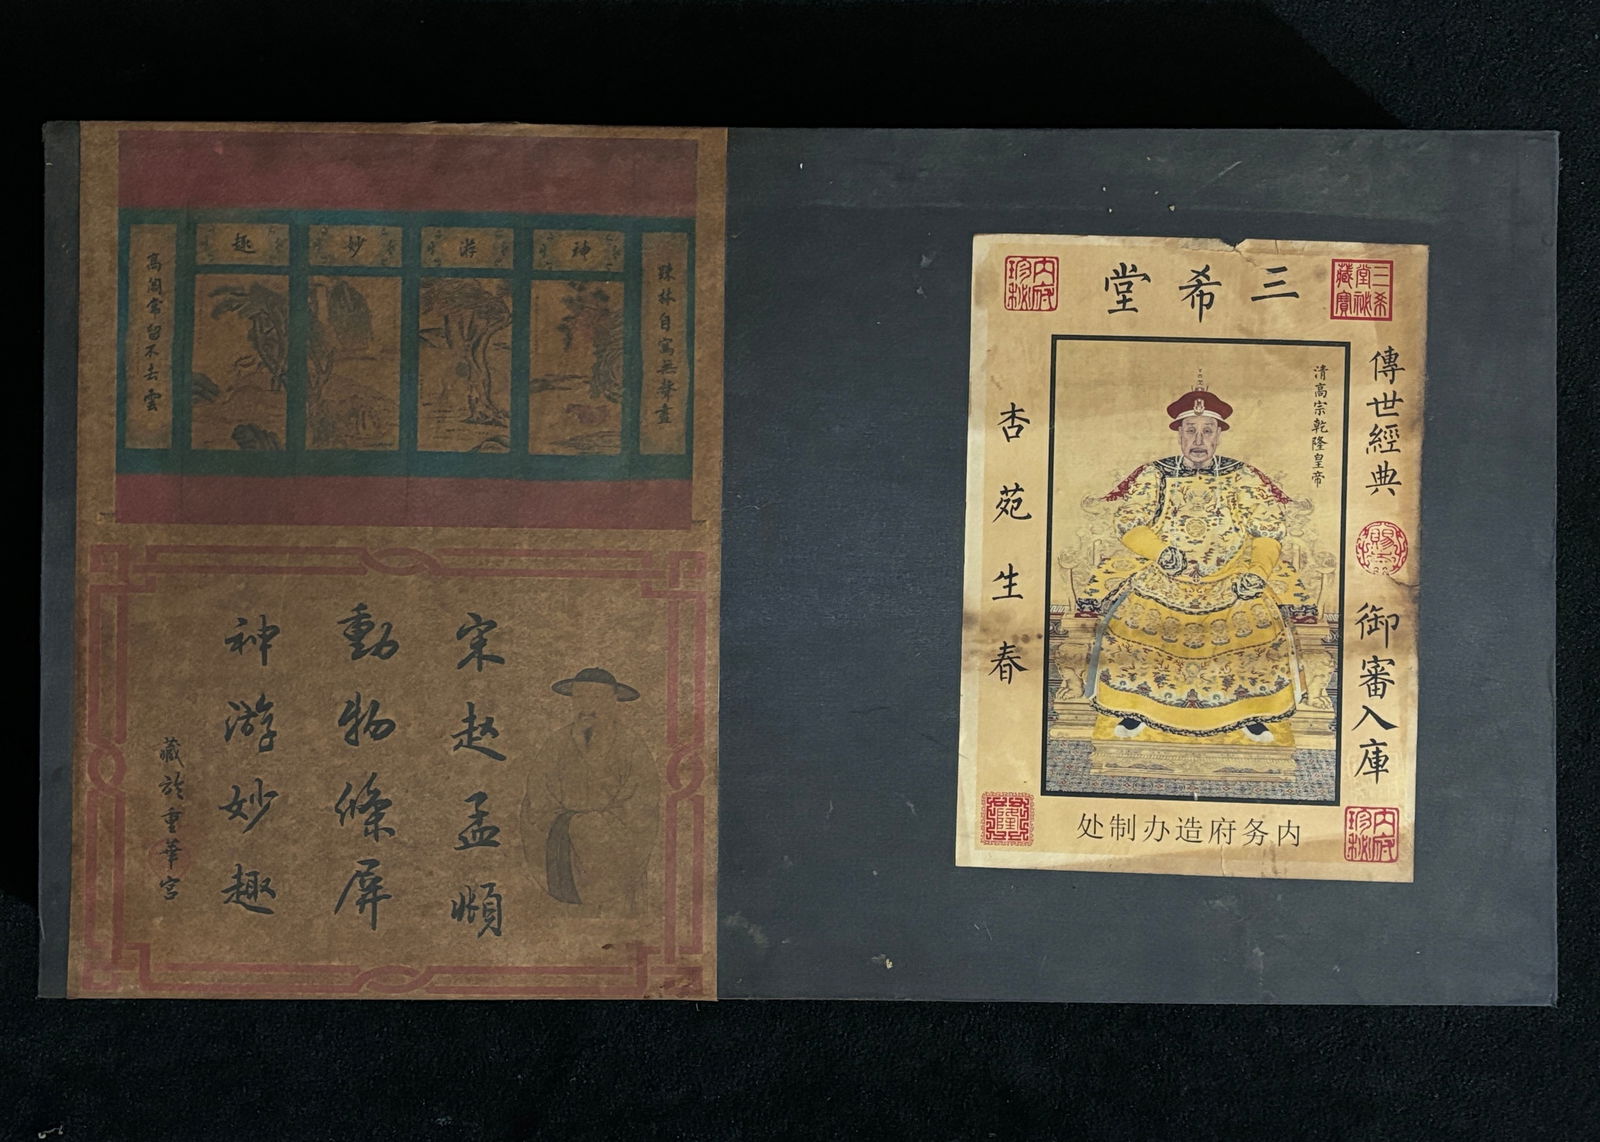 神游妙趣
疎林自寫無聲畫
高閣常留不去雲
宋赵孟頫
動物條屏
神游妙趣
藏於重華宮
三希堂
三希堂秘藏寶
内府珍秘
傳世經典
御審入庫
清高宗乾隆皇帝
杏苑生春
内务府造办制处
内府珍秘